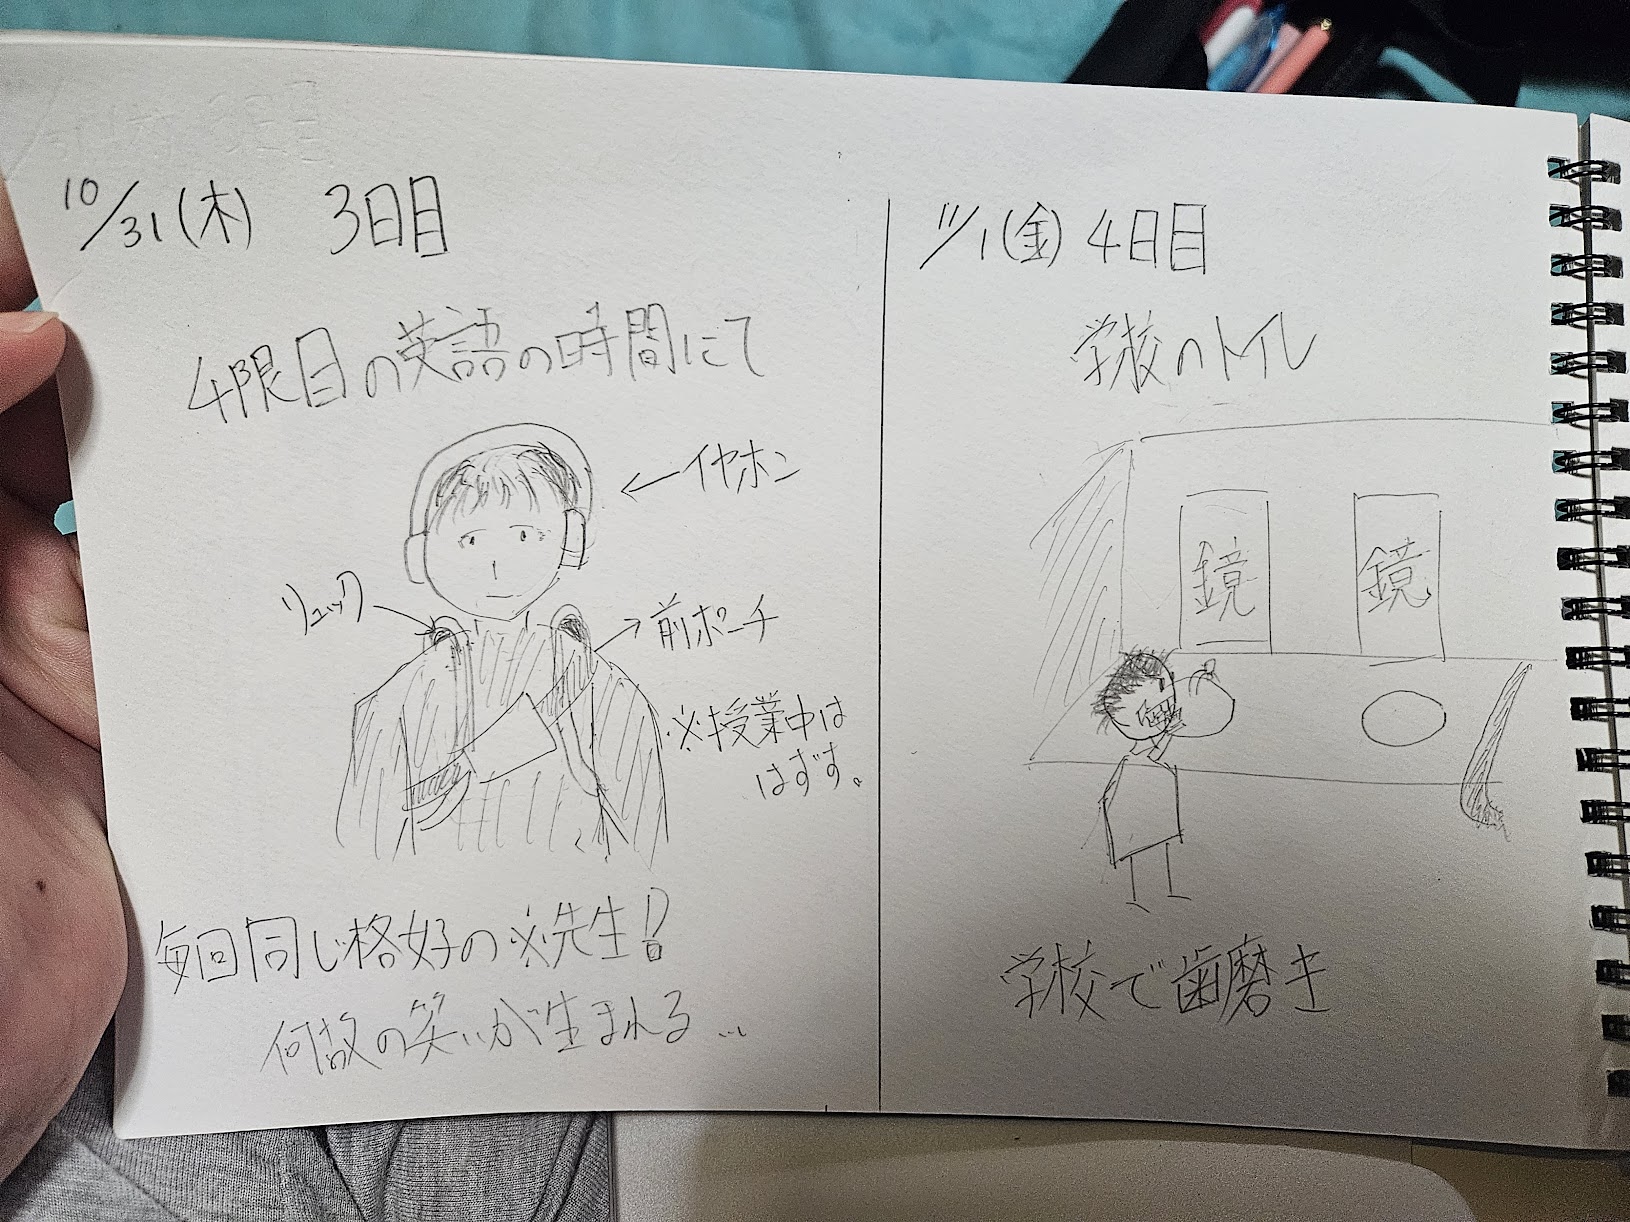 10/31(木) 3日目
4限目の英語の時間にて
←イヤホン
リュック
前ポーチ
※授業中は
はずす。
毎回同じ格好の※先生!
何故の笑いが生まれる...
11/1(金) 4日目
学校のトイレ
鏡
鏡
学校で歯磨き